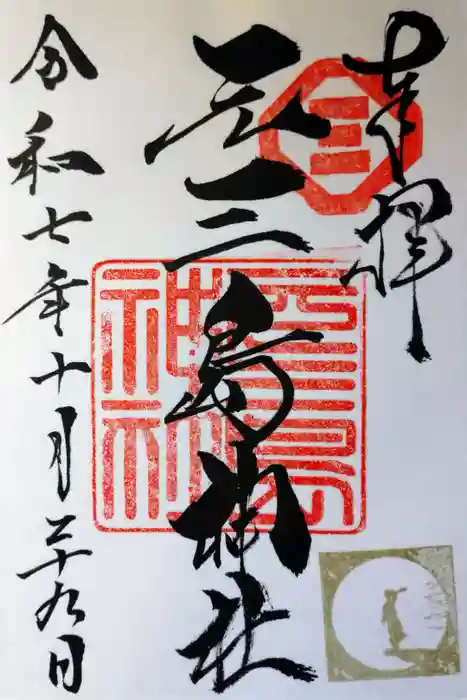 奉拝
元三島神社
令和七年十月二十九日
三
元三島
神社